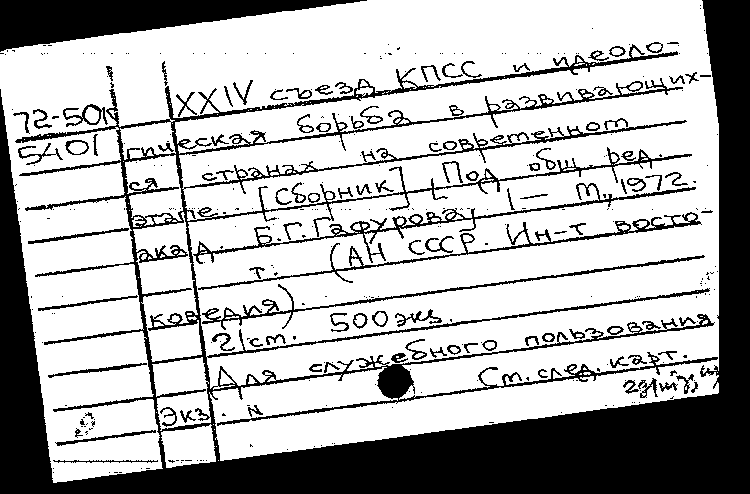 XXIV съезд КПСС и идеоло-
72-50м
5401
гическая борьба в развивающих-
ся странах на современном
этапе. [Сборник] [Под общ. ред.
акад. Б.Г. Гафурова] 1— М., 1972.
т. (АН СССР. Ин-т восто-
коведия).
2/ст. 500 экз.
(Для служебного пользования
Экз. N ) См. след. карт.